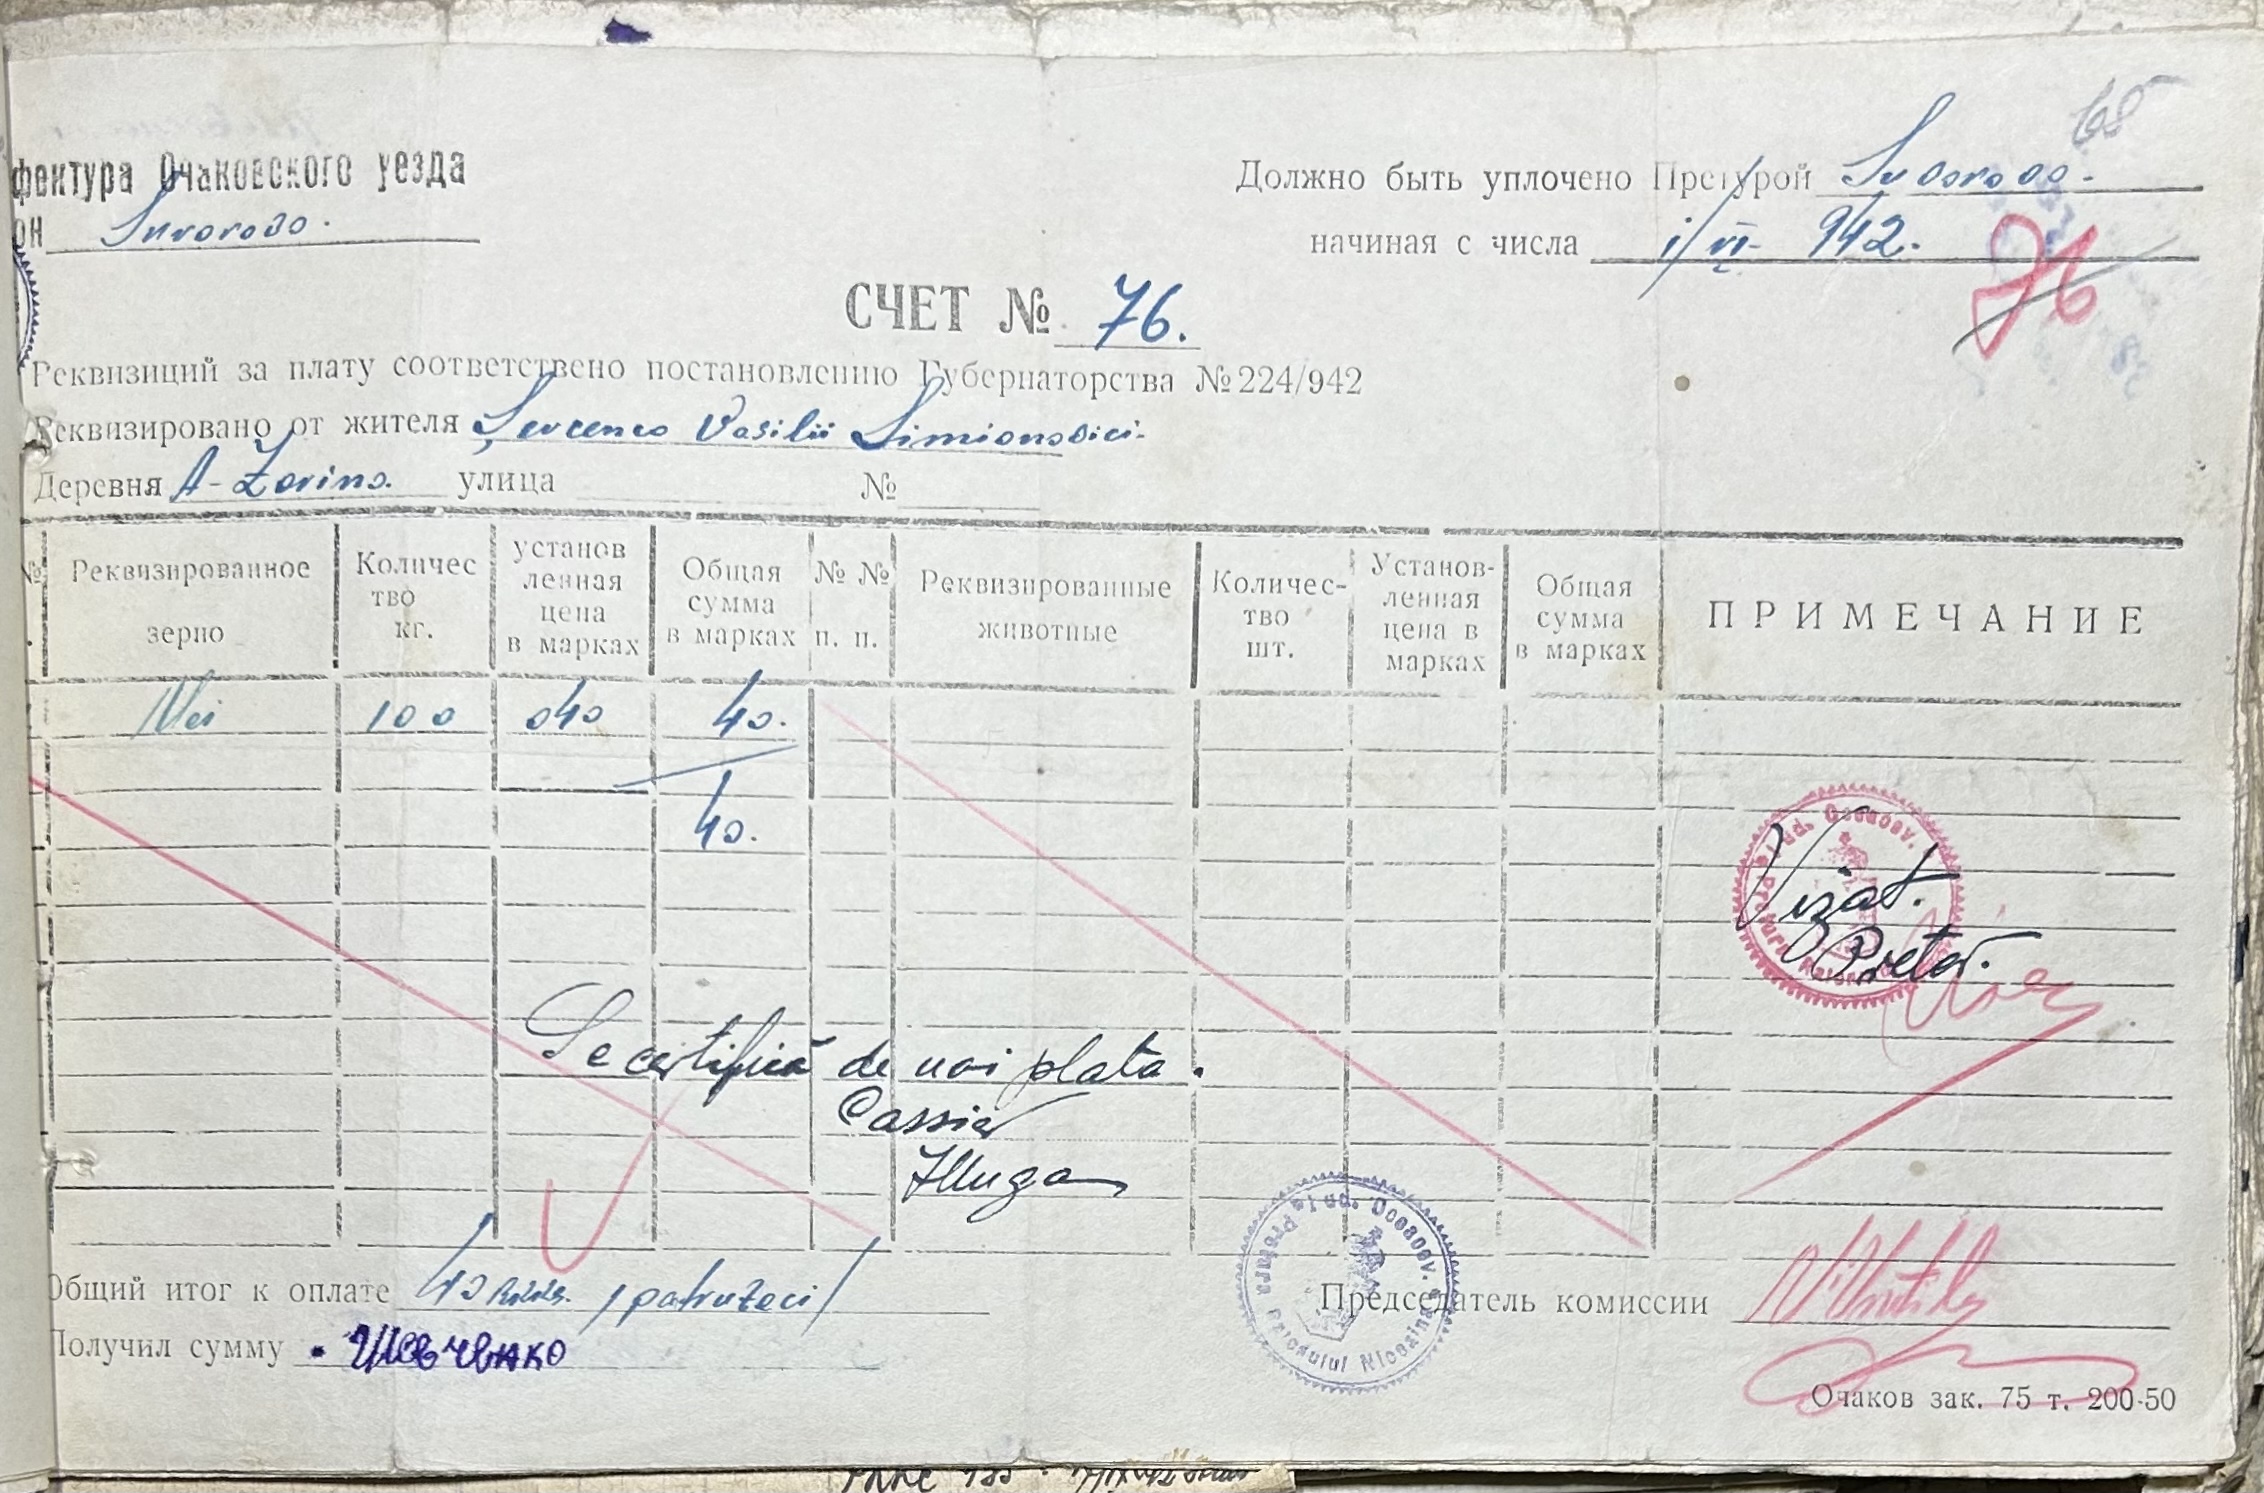 фектура Очаковского уезда
он Suvorovo.
65
Должно быть уплочено Претурой Suvorovo.
начиная с числа 1/VI- 942.
76
СЧЕТ № 76.
Реквизиций за плату соответствено постановлению Губернаторства № 224/942
Реквизировано от жителя Şevcenco Vasilii Simionovici.
Деревня A-Zorino. улица №
№ Реквизированное зерно Количес тво кг. установ ленная цена в марках Общая сумма в марках № № п. п. Реквизированные животные Количес- тво шт. Установ- ленная цена в марках Общая сумма в марках ПРИМЕЧАНИЕ
Mei 100 040 40.
40.
Vizat.
Pretor.
Se certifică de noi plata.
Cassier
Общий итог к оплате 40 /patruzeci/
Председатель комиссии
Получил сумму Шевченко
Очаков зак. 75 т. 200-50